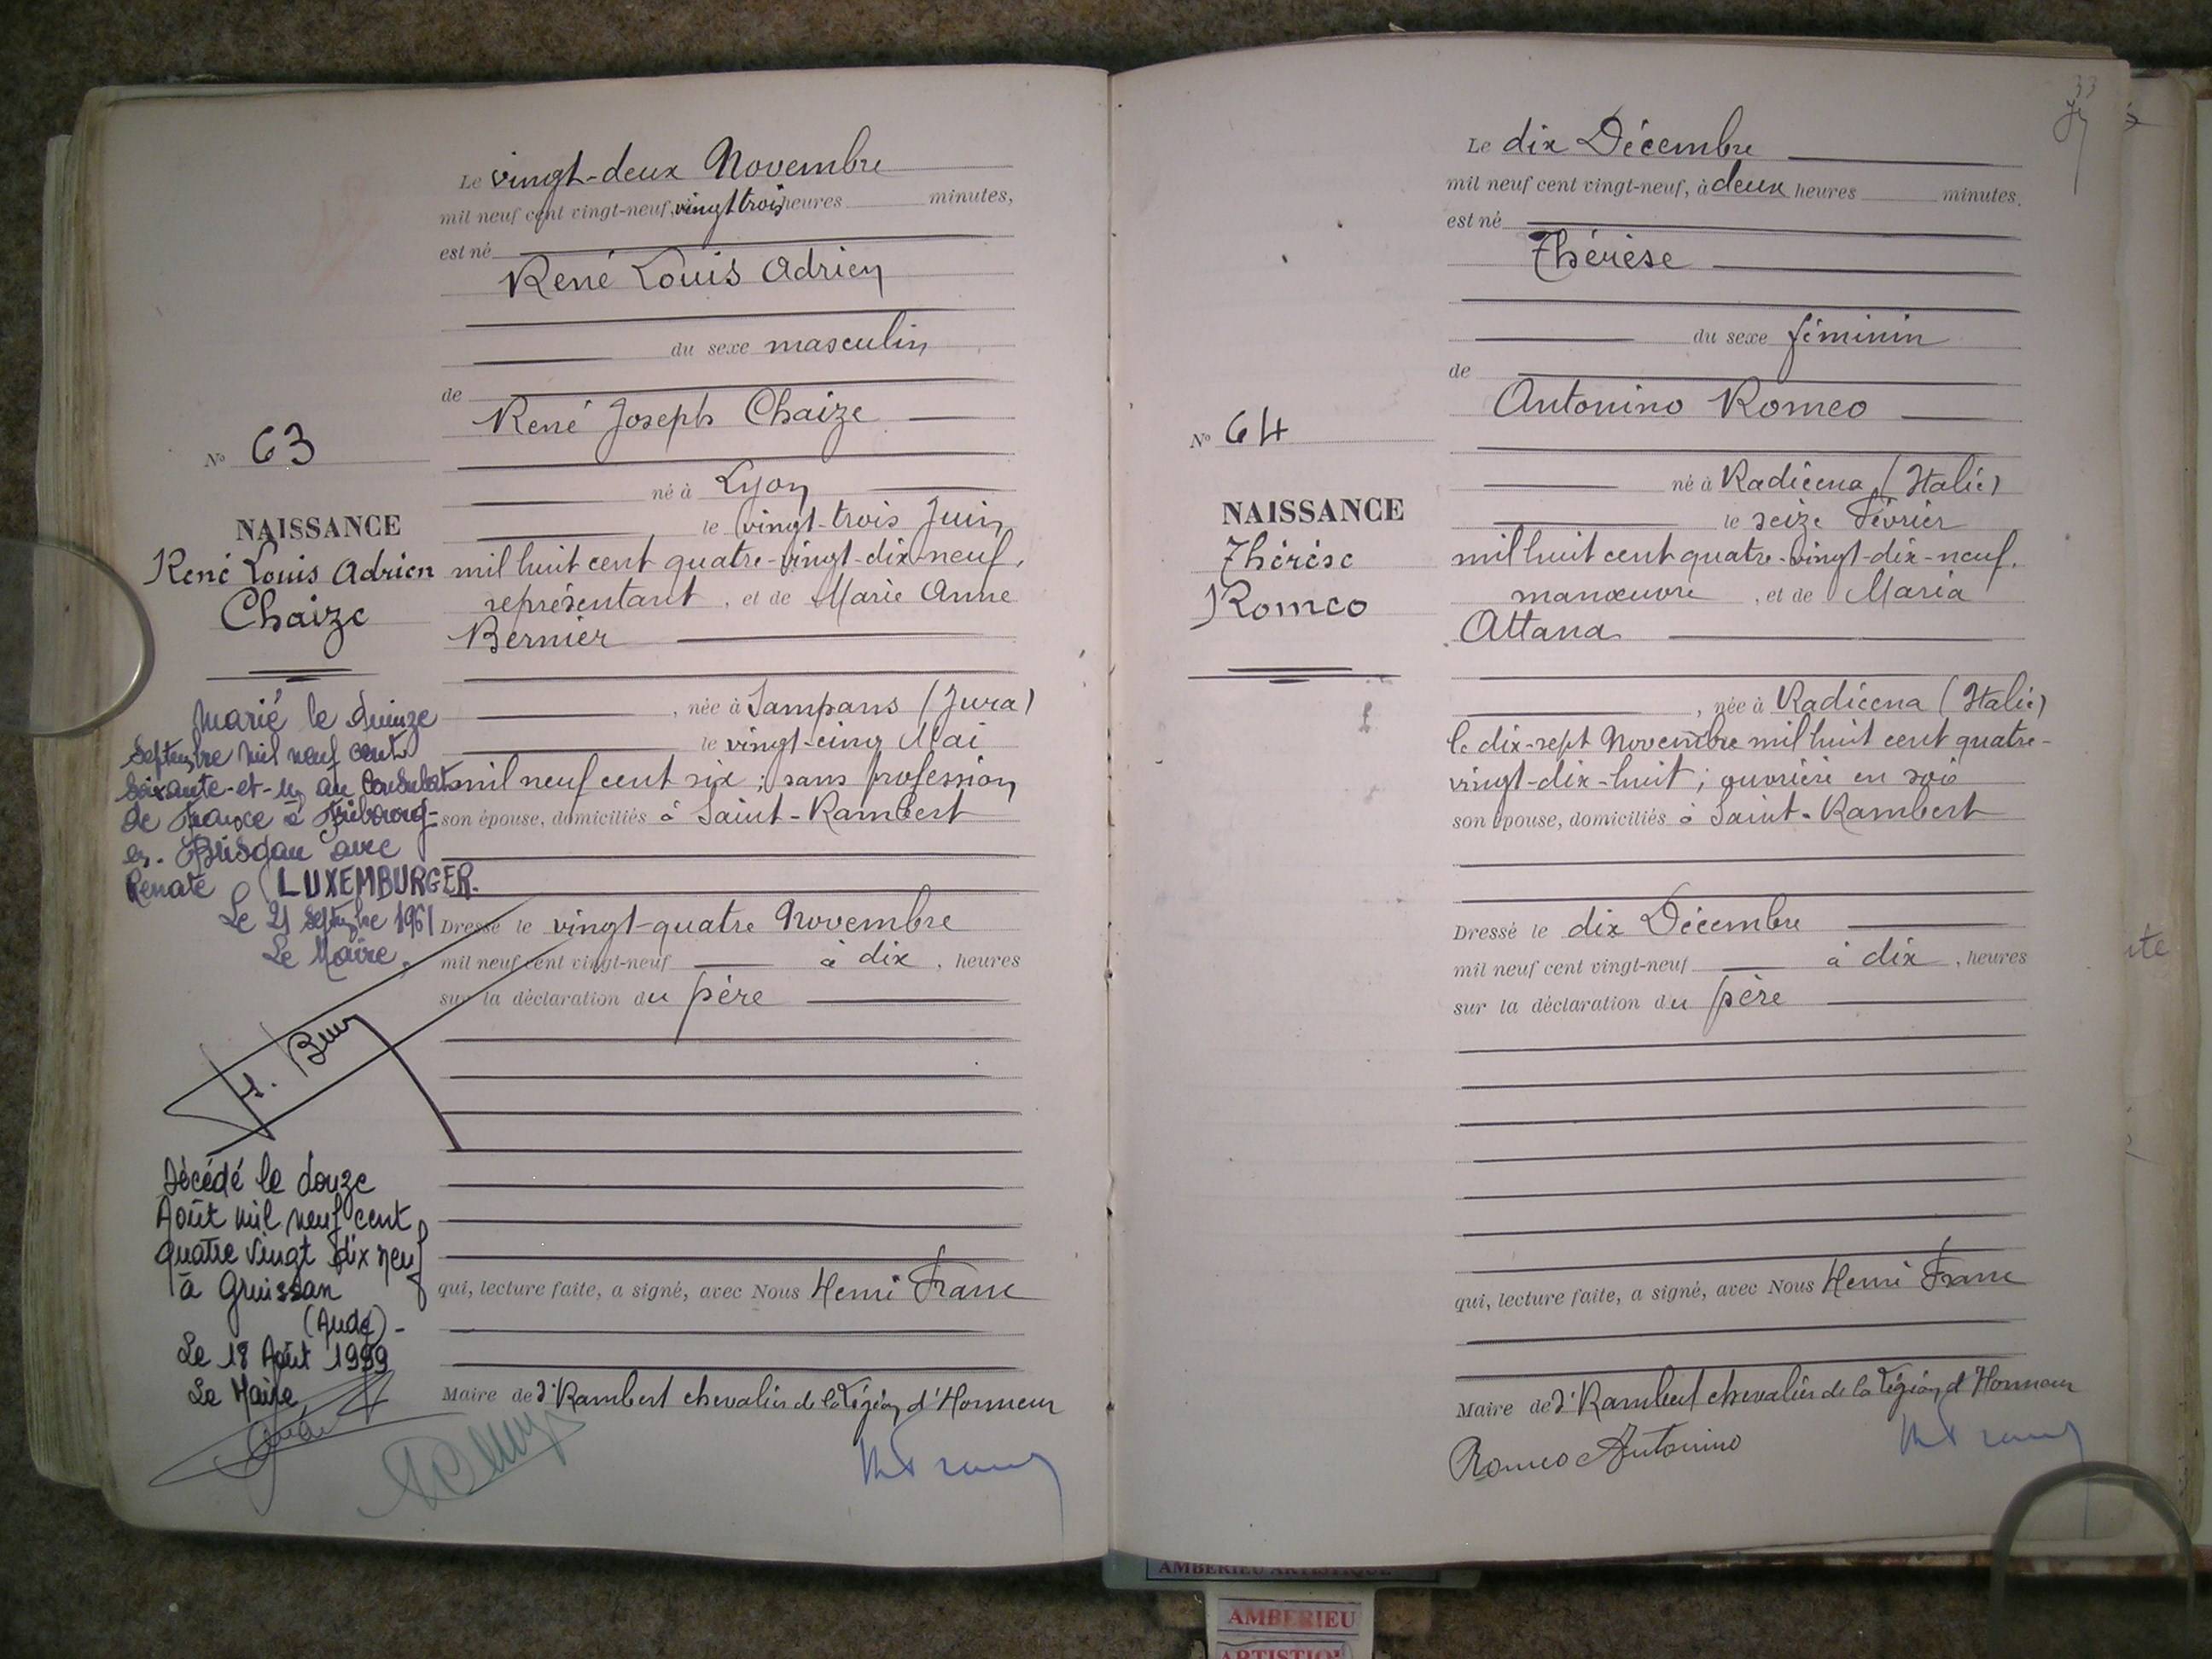 Le vingt-deux Novembre
mil neuf cent vingt-neuf, vingt trois heures minutes,
est né
René Louis Adrien
du sexe masculin
de
René Joseph Chaize
né à Lyon
le vingt-trois Juin
mil huit cent quatre-vingt-dix-neuf,
représentant, et de Marie Anne
Bernier
, née à Sampans (Jura)
le vingt-cinq Mai
mil neuf cent six ; sans profession
son épouse, domiciliés à Saint-Rambert
Dressé le vingt-quatre Novembre
mil neuf cent vingt-neuf à dix, heures
sur la déclaration du père
qui, lecture faite, a signé, avec Nous Henri Franc
Maire de St Rambert chevalier de la Légion d'Honneur
No 63
NAISSANCE
René Louis Adrien
Chaize
Marié le quinze
Septembre mil neuf cent
soixante-et-un au Consulat
de France à Fribourg-
en-Brisgau avec
Renate LUXEMBURGER.
Le 21 Septembre 1961
Le Maire.
Décédé le douze
Août mil neuf cent
quatre vingt dix neuf
à Gruissan
(Aude)-
Le 18 Août 1999
Le Maire,
33
Le dix Décembre
mil neuf cent vingt-neuf, à deux heures minutes.
est né
Thérèse
du sexe féminin
de
Antonino Romeo
No 64
NAISSANCE
Thérèse
Romeo
né à Radicena (Italie)
le seize Février
mil huit cent quatre-vingt-dix-neuf.
manœuvre, et de Maria
Attana
, née à Radicena (Italie)
le dix-sept Novembre mil huit cent quatre-
vingt-dix-huit ; ouvrière en soie
son épouse, domiciliés à Saint-Rambert
Dressé le dix Décembre
mil neuf cent vingt-neuf à dix, heures
sur la déclaration du père
qui, lecture faite, a signé, avec Nous Henri Franc
Maire de St Rambert chevalier de la Légion d'Honneur
Romeo Antonino
AMBERIEU ARTISTIQUE
AMBERIEU